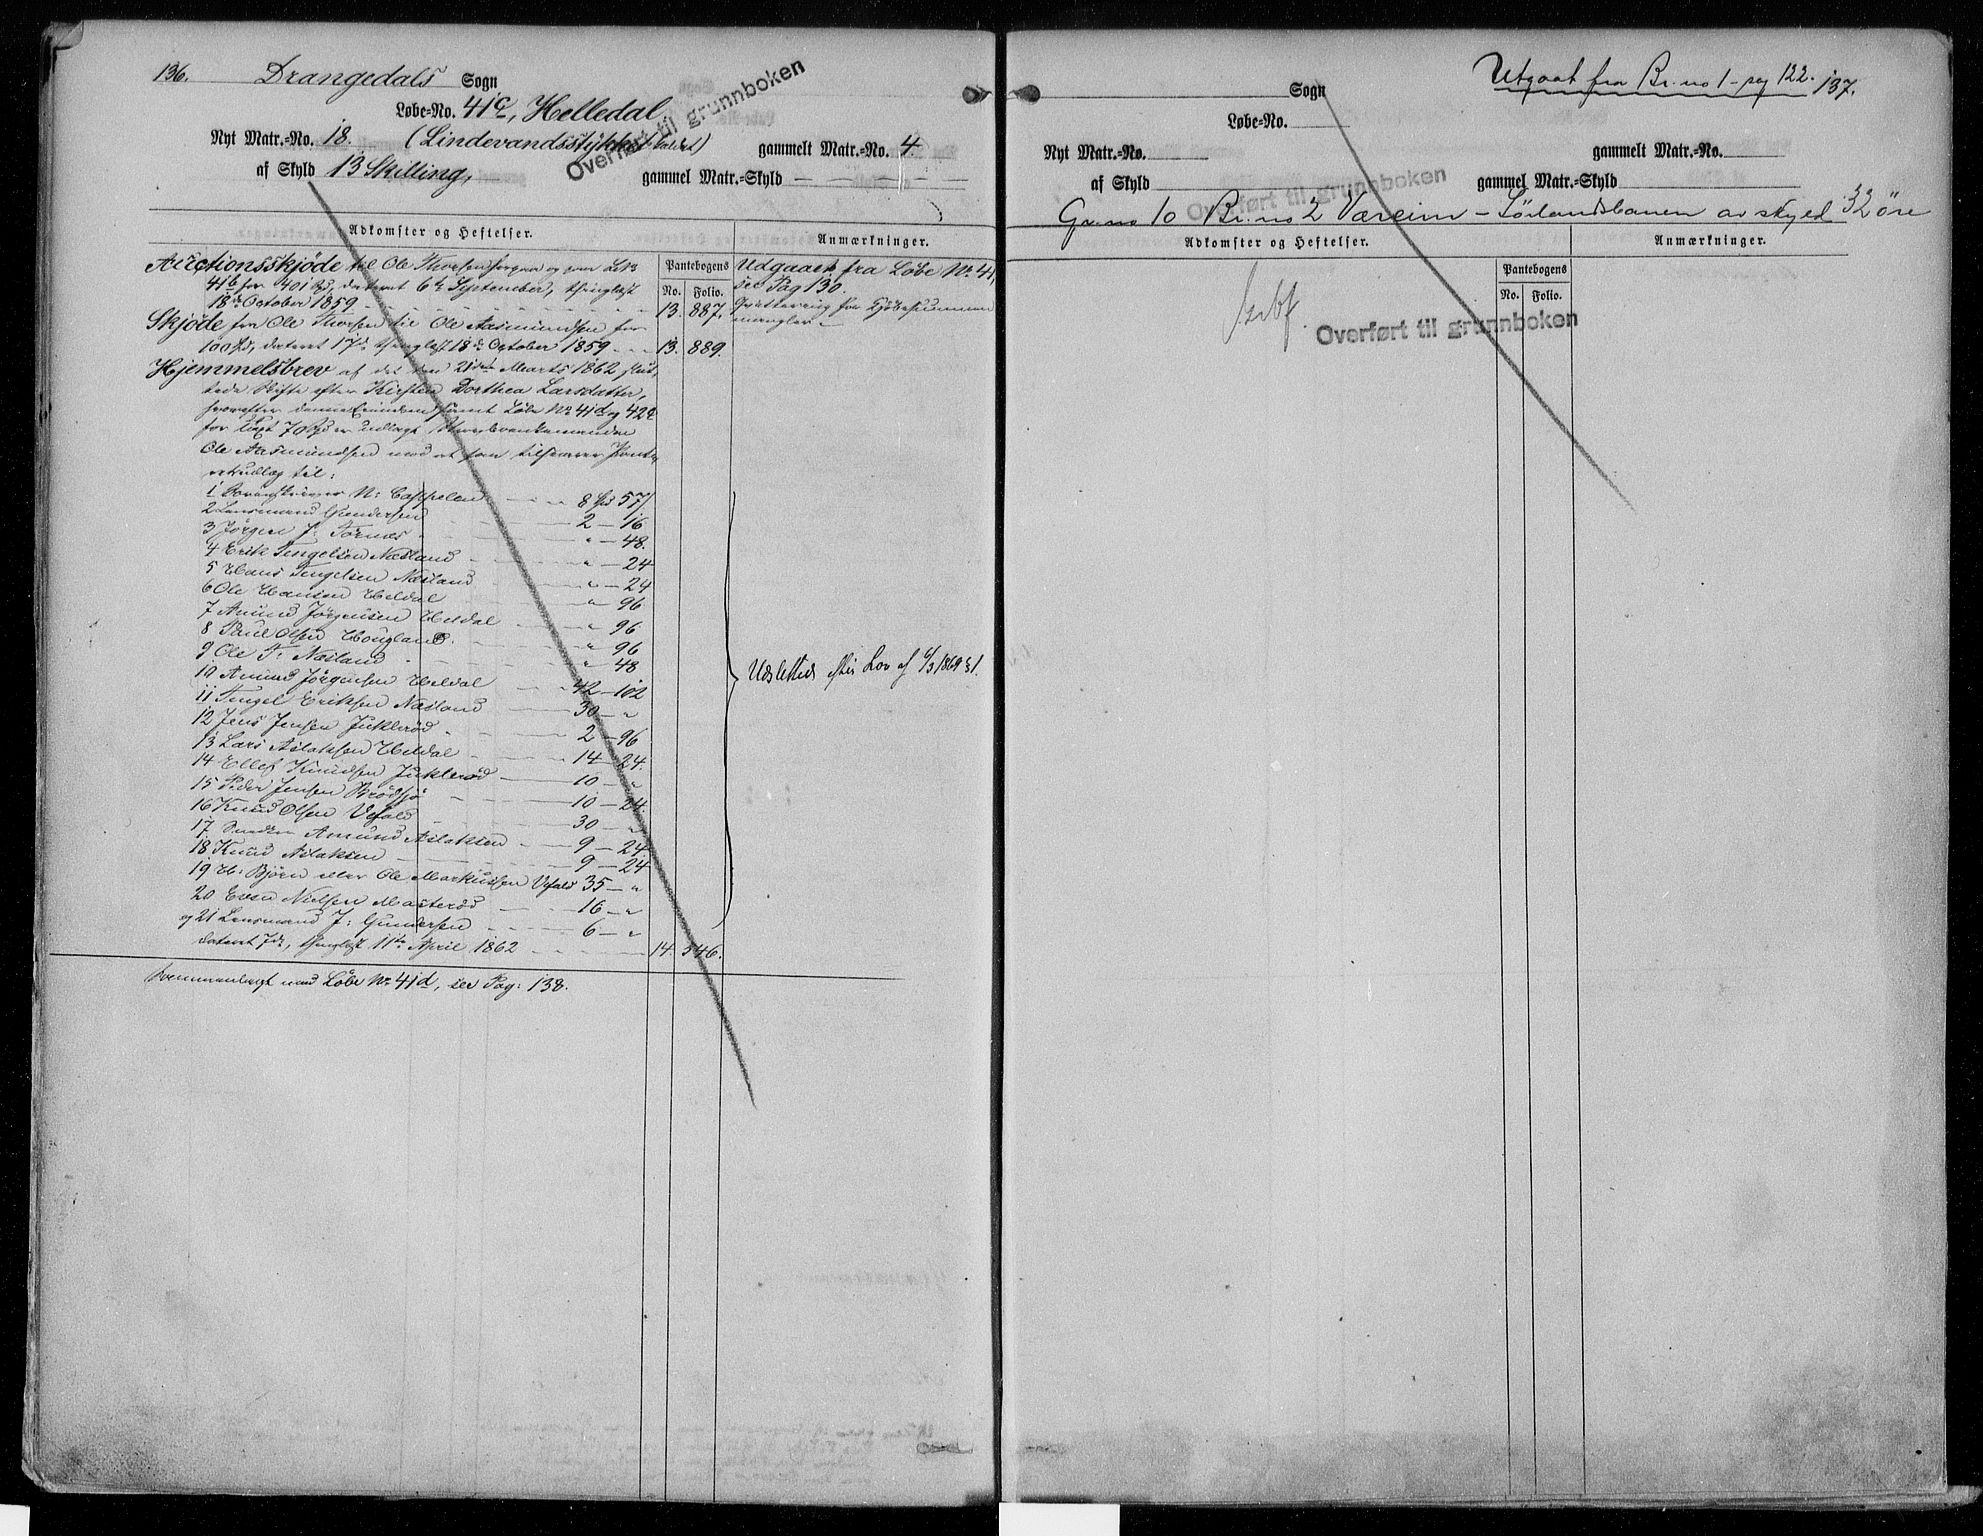 136.
Drangedals Sogn
Løbe-No. 41c, Helledal
Nyt Matr.-No. 18. (Lindevandsstykket kaldet) gammelt Matr.-No. 4.
af Skyld 13 Skilling, gammel Matr.-Skyld
Overført til grunnboken
Adkomster og Heftelser.
Pantebogens
No. Folio.
Anmærkninger.
Auctionsskjøde til Ole Thorsen for
41b for 401 Spd, dateret 6te September, thinglæst
18de October 1859 13. 887.
Udgaaet fra Løbe No. 41,
see Pag 130.
Qvittering for Kjøbesummen
mangler
Skjøde fra Ole Thorsen til Ole Aasmundsen for
100 Spd, dateret 17de thinglæst 18de October 1859 13. 889.
Hjemmelsbrev af det den 21de Marts 1862 slut-
tede Skifte efter Kirsten Dorthea Larsdatter,
hvorefter denne Eiendom samt Løbe No. 41d og 42c
for Taxt 70 Spd er udlagt
Ole Aasmundsen mod at han tilsvarer Pante-
retudlæg til:
1 N: Cappelen 8 Spd 57/
2 Lensmand Gundersen 2 — 16
3 Jørgen J: Tørnæs " — 48.
4 Erik Tengelsen Næsland " — 24
5 Hans Tengelsen Næsland " — 24
6 Ole Hansen Heldal " 96
7 Amund Jørgensen Heldal " 96
8 Paul Olsen Hougland. " 96
9 Ole T: Næsland " 48
10 Amund Jørgensen Heldal 42 — 102
11 Tengel Eriksen Næsland 30 — "
12 Jens Jensen Juklerød 2 — 96
13 Lars Aslaksen Heldal 14 — 24.
14 Ellef Knudsen Juklerød 10 — "
15 Peder Jensen Brødsjø 10 — 24.
16 Knud Olsen Vefald 30 — "
17 Amund Aslaksen 9 — 24
18 Knud Aslaksen 9 — 24
19 H: Bjørn eller Ole Markussen Vefald 35 — "
20 Even Nielsen Masterød 16 — "
og 21 Lensmand J: Gundersen 6 — "
Udslettes efter Lov af 6/3 1869 § 1.
dateret 7de, thinglæst 11te April 1862 14. 546.
Sammenlagt med Løbe No. 41d, see Pag: 138.
Utgaat fra Br. no 1 - pag 122. 137.
Sogn
Løbe-No.
Nyt Matr.-No. gammelt Matr.-No.
af Skyld gammel Matr.-Skyld
Overført til grunnboken
Gr. no 10 Br. no 2 Væreim - Sørlandsbanen av skyld 32 øre
Adkomster og Heftelser.
Pantebogens
No. Folio.
Anmærkninger.
Overført til grunnboken